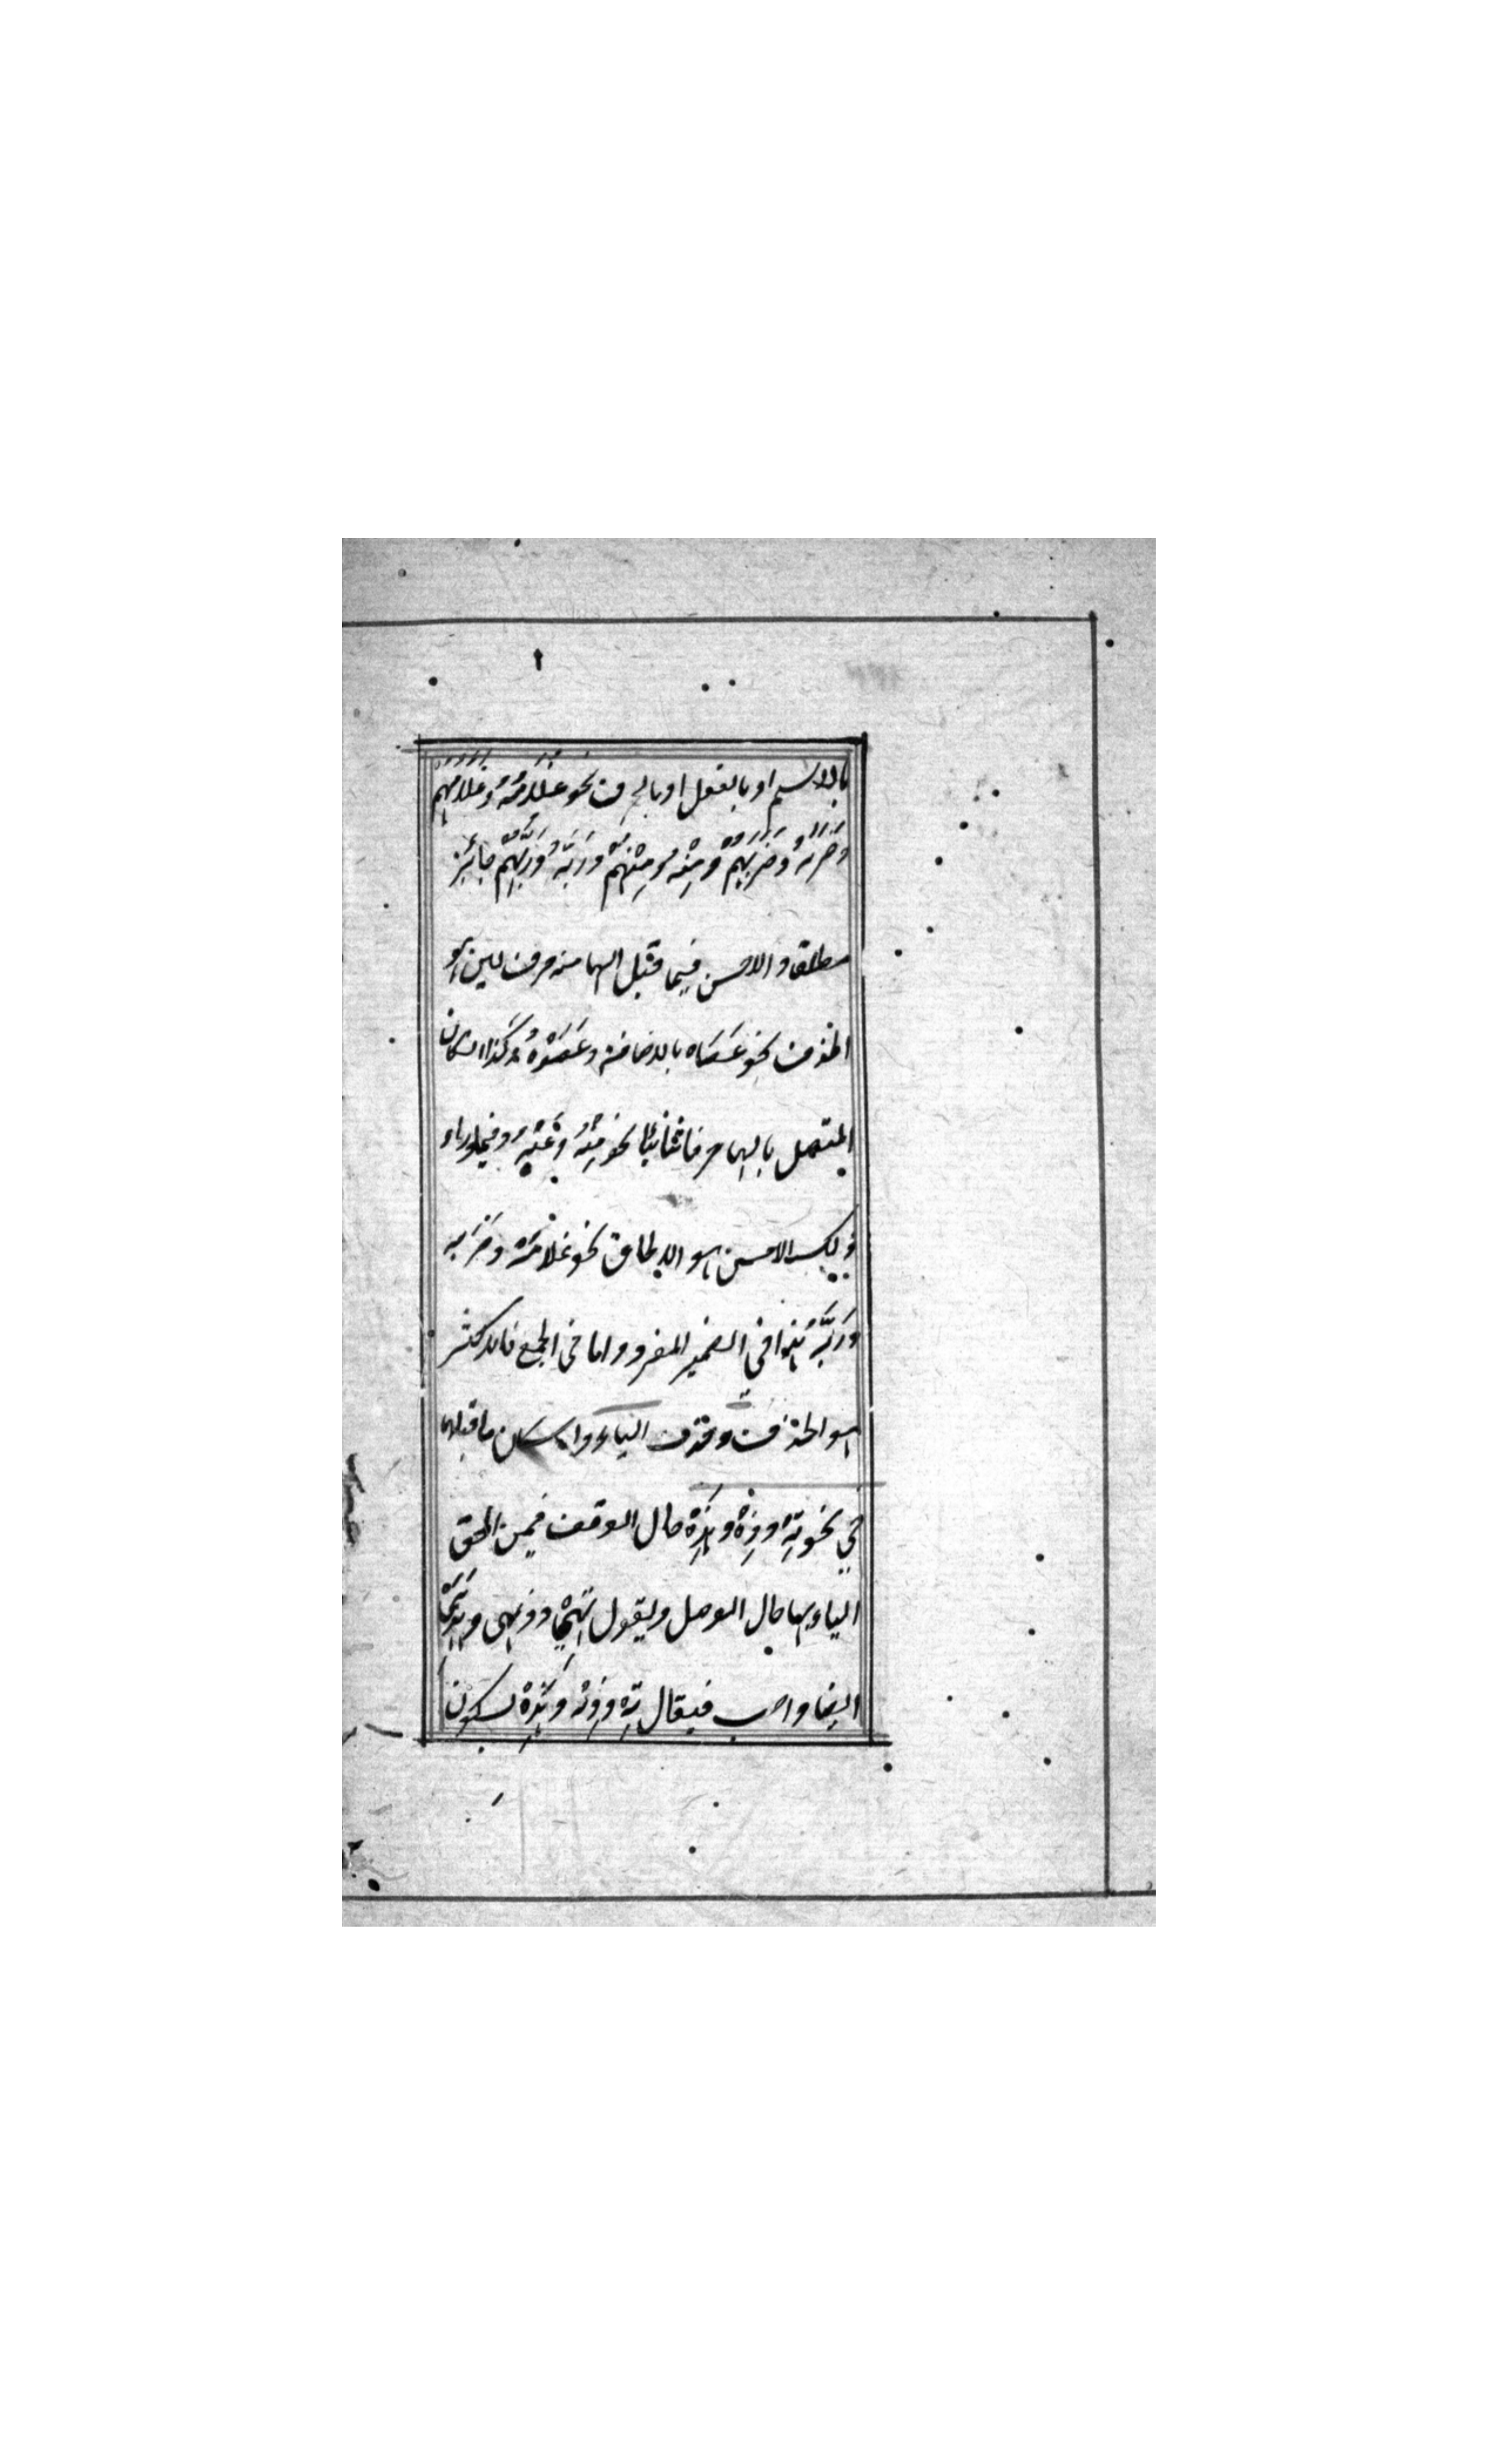 بالاسم او بالفعل او بالحرف نحو غُلَامُهُ وَغُلَامُهُم
وَضَرَبَهُ وَضَرَبَهُمْ وَمِنْهُ وَمِنْهُمْ وَرَبَّهُ وَرَبَّهُمْ جائز
مطلقا والاحسن فيما قبل الهامنه حرف لين هو
الحذف نحو عَصَاه بالاضافة وعَصَوْهُ وكذا ان كان
المتصل بالهاء حرفا ثنائيا نحو مِنْهُ وعَنْهُ وفيما وراء
ذلك الاحسن هو الالحاق نحو غلامُهُ وضَرَبَه
وَرَبَّه هذا فى الضمير المفرد واما فى الجمع فالاكثر
هو الحذف وحذف الياء واسكان ما قبلها
في نحو تِهْ وذِهْ وهذِهْ حال الوقف فيمن الحق
الياء بها حال الوصل ويقول تِهِي وذهي وهَذِهِي
ايضا واجب فيقال تِهْ وذِهْ وهَذِهْ بسكون